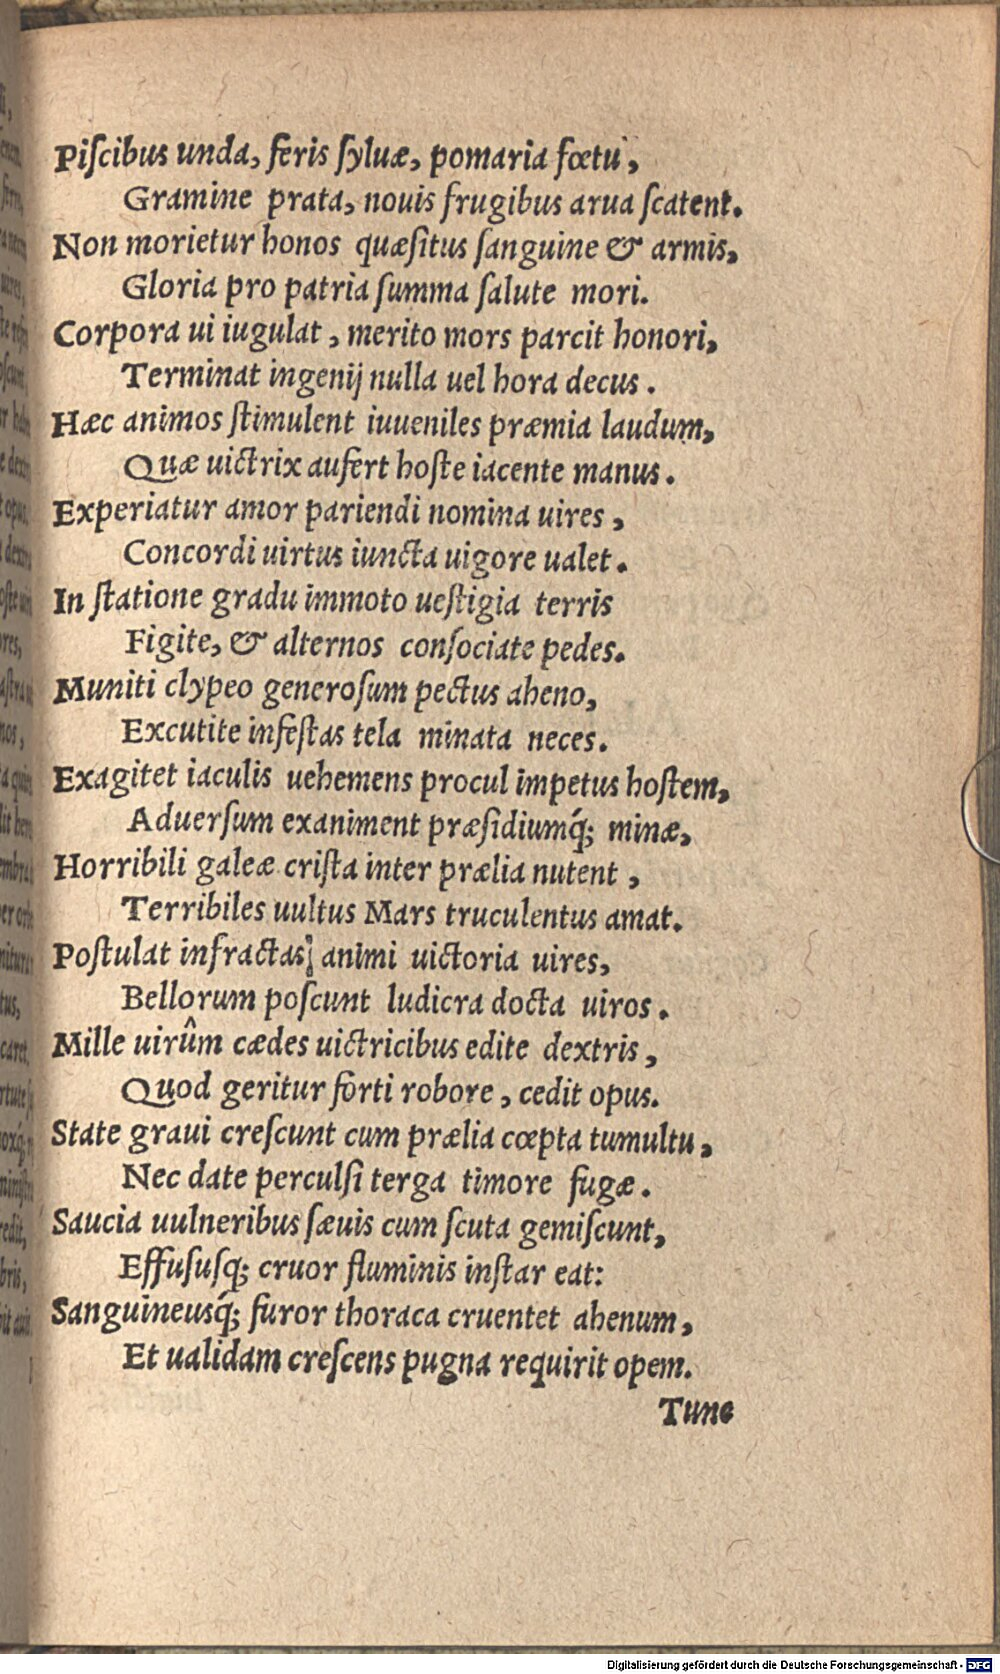 Piſcibus unda, feris ſyluæ, pomaria fœtu,
Gramine prata, nouis frugibus arua ſcatent.
Non morietur honos quæſitus ſanguine & armis,
Gloria pro patria ſumma ſalute mori.
Corpora ui iugulat, merito mors parcit honori,
Terminat ingenij nulla uel hora decus.
Hæc animos ſtimulent iuueniles præmia laudum,
Quæ uictrix aufert hoſte iacente manus.
Experiatur amor pariendi nomina uires,
Concordi uirtus iuncta uigore ualet.
In ſtatione gradu immoto ueſtigia terris
Figite, & alternos conſociate pedes.
Muniti clypeo generoſum pectus aheno,
Excutite infeſtas tela minata neces.
Exagitet iaculis uehemens procul impetus hoſtem,
Aduerſum exaniment præſidiumq́; minæ,
Horribili galeæ criſta inter prælia nutent,
Terribiles uultus Mars truculentus amat.
Poſtulat infractas animi uictoria uires,
Bellorum poſcunt ludicra docta uiros.
Mille uirûm cædes uictricibus edite dextris,
Quod geritur forti robore, cedit opus.
State graui creſcunt cum prælia cœpta tumultu,
Nec date perculſi terga timore fugæ.
Saucia uulneribus ſæuis cum ſcuta gemiſcunt,
Effuſuſq; cruor fluminis inſtar eat:
Sanguineusq́; furor thoraca cruentet ahenum,
Et ualidam creſcens pugna requirit opem.
Tunc
Digitalisierung gefördert durch die Deutsche Forschungsgemeinschaft - DFG